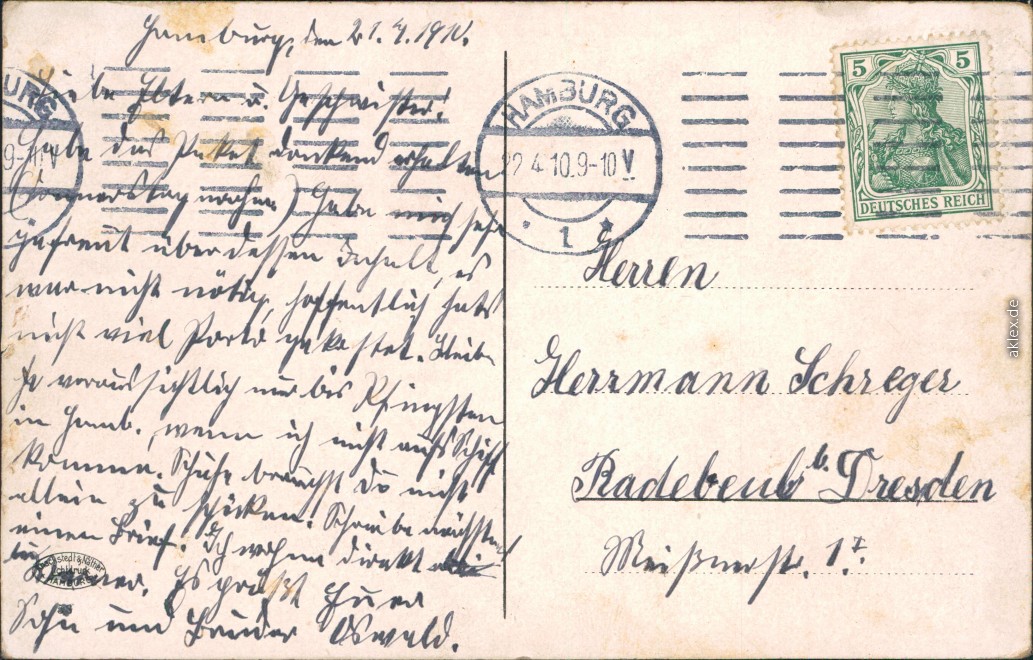 Hamburg, den 21.4.1910.
Liebe Eltern u. Geschwister!
Habe das Paket dankend erhalten
(Donnerstag nachm) Habe mich sehr
gefreut über dessen Inhalt, es
war nicht nötig, hoffentlich hats
nicht viel Porto gekostet. Bleibe
ja voraussichtlich nur bis Pfingsten
in Hamb., wenn ich nicht aufs Schiff
komme. Schuhe brauchst Du nicht
allein zu schicken. Schreibe nächstens
einen Brief. Ich wohne direkt
Es grüßt Euer
Sohn und Bruder Oswald.
HAMBURG
22.4.10.9-10V
1
5 5
DEUTSCHES REICH
Herren
Herrmann Schreger
Radebeul b. Dresden
Meißnerstr. 1 I
aklex.de